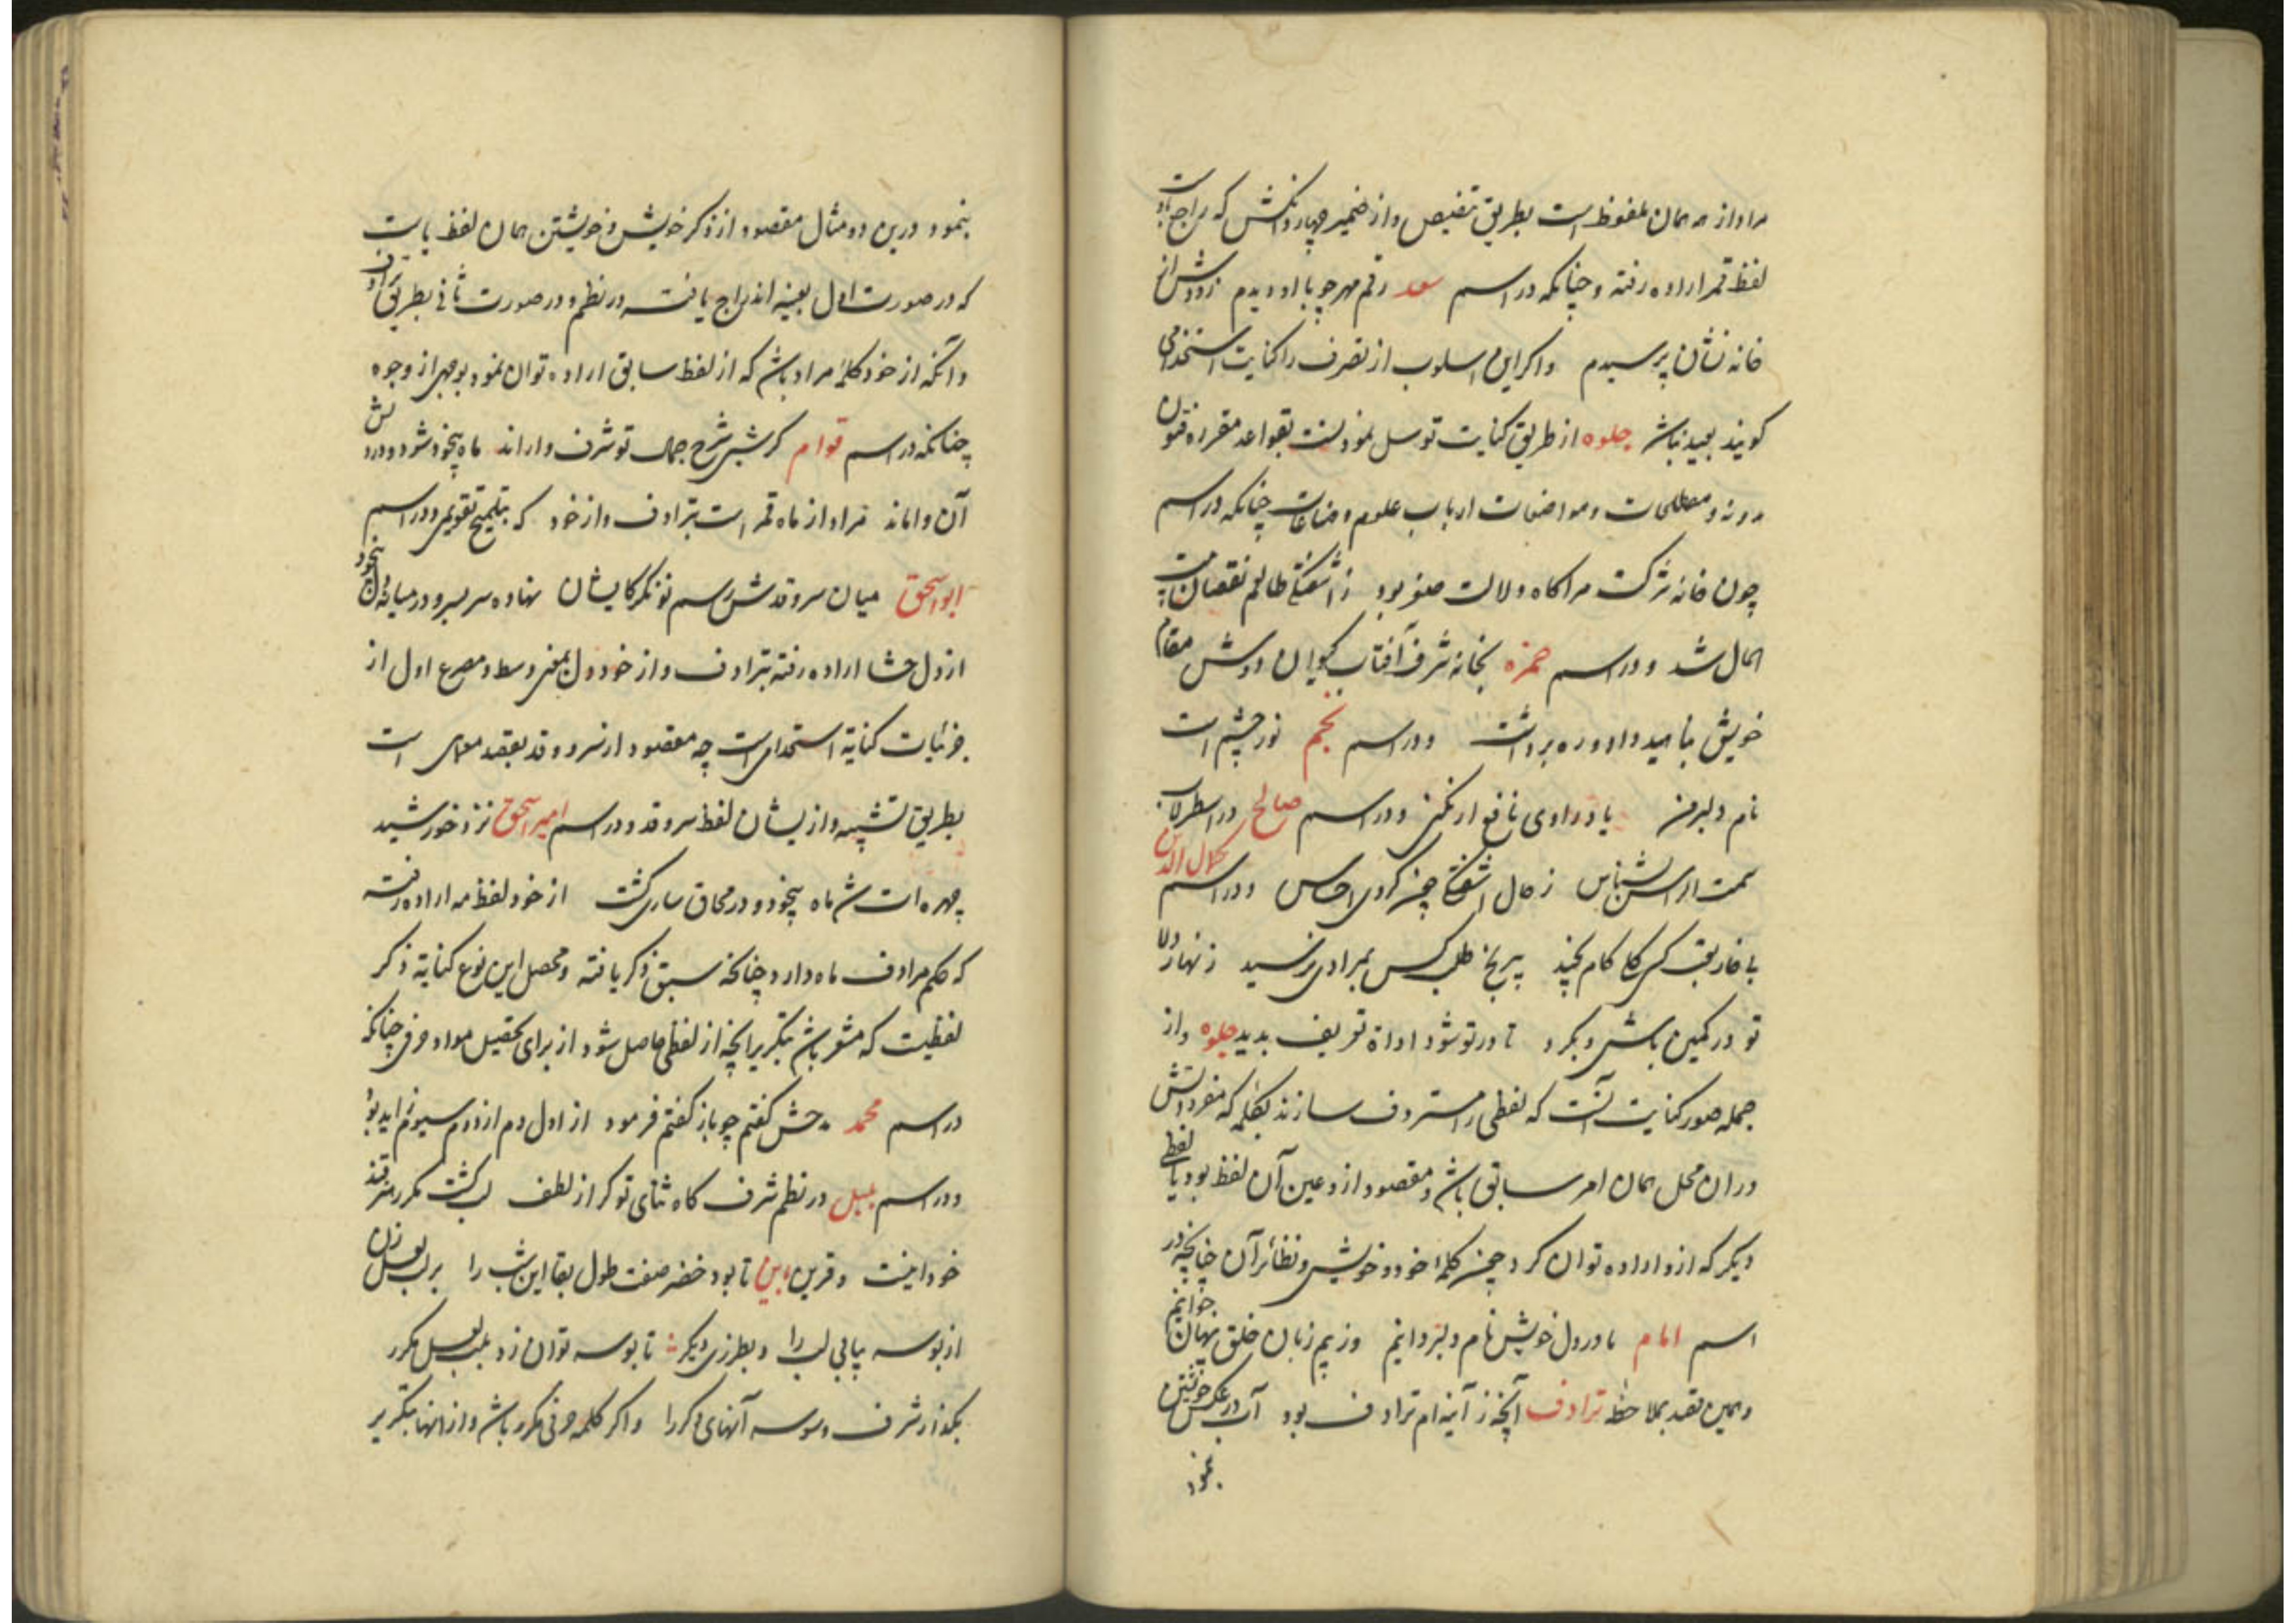 مراد از مه همان ملفوظ است بطریق تنصیص و از ضمیر چهار دانکش که راجع باوست
لفظ قمر اراده رفته و چنانکه در اسم سعد رقم مهر چو با او دیدم زودش از
خانه نشان پرسیدم و اکر این اسلوب از تصرف را کنایت استخدامی
کویند بعید نباشد جلوه از طریق کنایت توسل نمودنست بقواعد مقرره فنون
مدونه و مصطلحات و مواضعات ارباب علوم و صناعات چنانکه در اسم
چون خانه مراکاه دلالت صفر بود ز آشفتکی طالعم نقصان
المال شد و در اسم حمزه بخانه شرف آفتاب کویان دوش مقام
خویش بناهید داد و ره برداشت و در اسم نجم نور چشم است
نام دلبر من یاد راوی نافع ار نکنی و در اسم صالح در اسطرلاب
سمت اشناس ز حال آشفتکی چون کردی احساس و در اسم کمال الدین
با خار رقیب کس کل کام نچید بی رنج طلب کس بمرادی نرسید زنهار دلا
تو در کمین باش و بکرد تا در تو شود اداة تعریف بدید جلوه و از
جمله صور کنایت آنست که لفظی را مستردف سازند بکلمه که مفردش
در ان محل همان امر سابق باشد و مقصود از و عین آن لفظ بود یا لفظی
دیکر که از و اراده توان کرد چون کلمه خود و خویش و نظائر آن چنانچه در
اسم امام ما در دل خویش نام دلبر دانیم وز بیم زبان خلق پنهان خوانیم
و همین قصد بملاحظه ترادف آنچه ز آینه ام ترادف بود آب در عکس خویشتن
بنمود
بنمود درین دو مثال مقصود از ذکر خویش و خویشتن همان لفظ یابست
که در صورت اول بعینه اندراج یافته در نظم و در صورت ثانی بطریق ترادف
و آنکه از خود کلمه مراد باشد که از لفظ سابق اراده توان نمود بوجهی از وجوه
چنانکه در اسم قوام کر شبی شرح جمالت تو شرف وار اند ماه بیخود شود و در دلش
آن واماند مراد از ماه قمر است بترادف و از خود که بتلمیح تقویمی و در اسم
ابو اسحق میان سرو قدش رسم نو نکر کایشان نهاده سر بسر و در میانه دل بیخود
از دل حشا اراده رفته بترادف و از خود دل بمعنی وسط و مصرع اول از
جزئیات کنایة استخدامی است چه مقصود از سرو و قد بقصد معمایی است
بطریق تشبیه و از یشان لفظ سرو قد و در اسم امیر اسحق نزد خورشید
چهره ات شد ماه بیخود و در محاق ساری کشت از خود لفظ مه اراده رفته
که حکم مرادف ماه دارد چنانکه سبق ذکر یافته و محصل این نوع کنایة ذکر
لفظیست که مشعر باشد بتکریر آنچه از لفظی حاصل شود از برای تحصیل مواد حرفی چنانکه
در اسم محمد مدحش کفتم چو باز کفتم فرمود از اول دم از دوم سیوم اید بود
و در اسم بلبل در نظم شرف کاه ثنای تو کر از لطف لب کشت مکرر قند
خود اینست و قرین این تا بود خضر صفت طول بقا این شب را بر لب لعل زن
از بوسه پیاپی لب را و بطرزی دیکر تا بوسه توان زد بلب لعل مکرر
بکذار شرف وسوسه آنهای دکر را و اکر کلمه حرفی مکرر باشد و از انها بتکریر